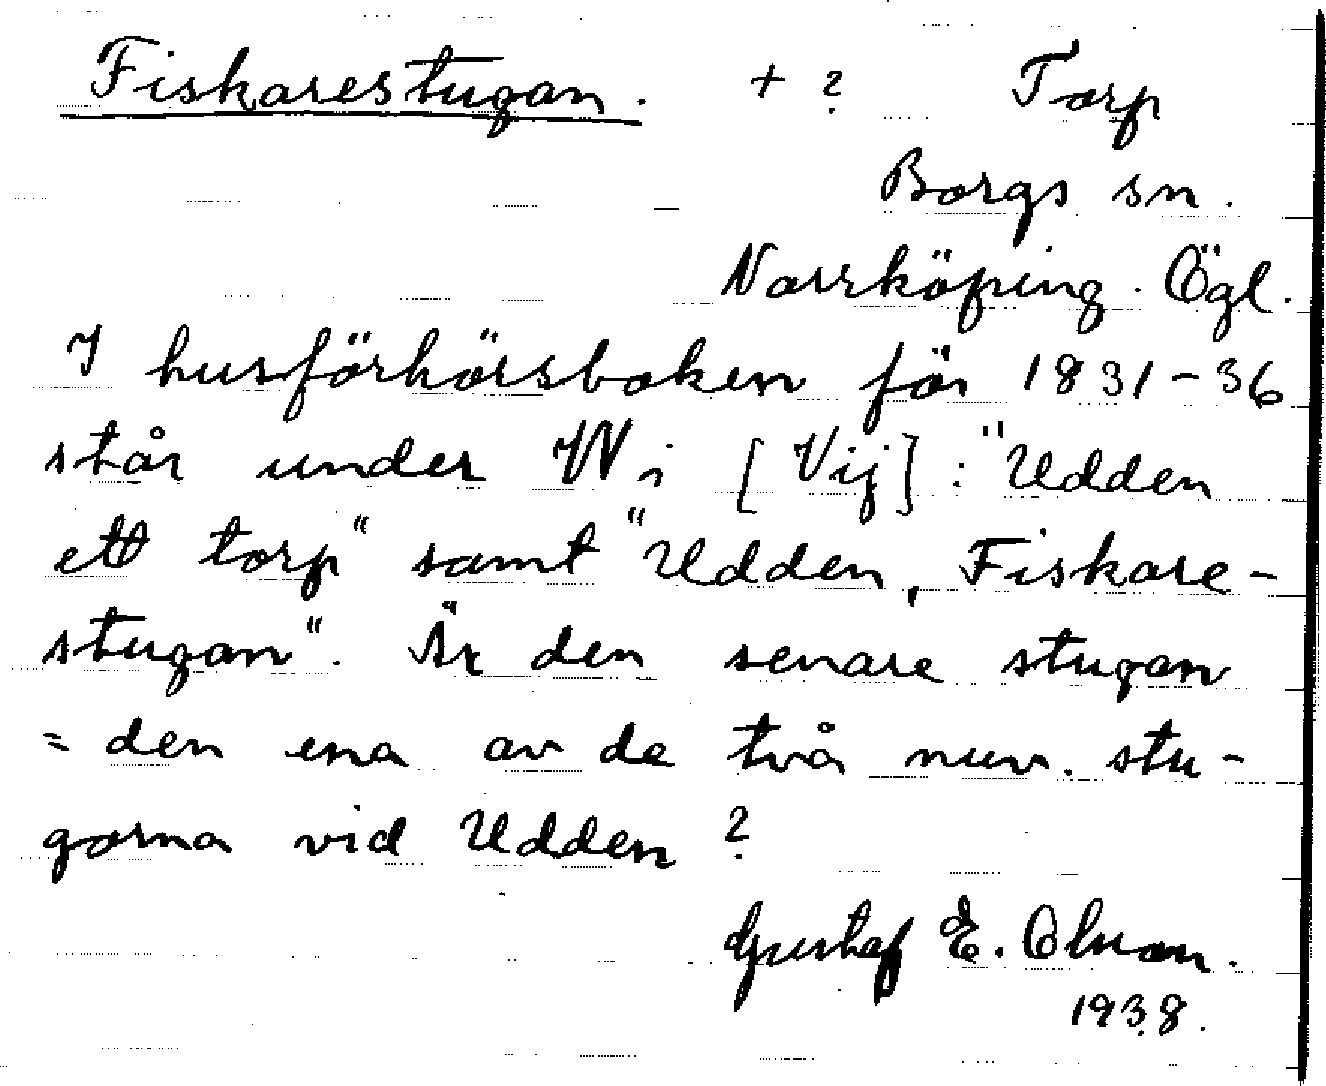 Fiskarestugan. + ? Torp
Borgs sn.
Norrköping. Ögl.
I husförhörsboken för 1831-36
står under Wi [Vij]: "Udden
ett torp" samt "Udden, Fiskare-
stugan". Är den senare stugan
= den ena av de två nuv. stu-
gorna vid Udden?
Gustaf E. Olsson.
1938.